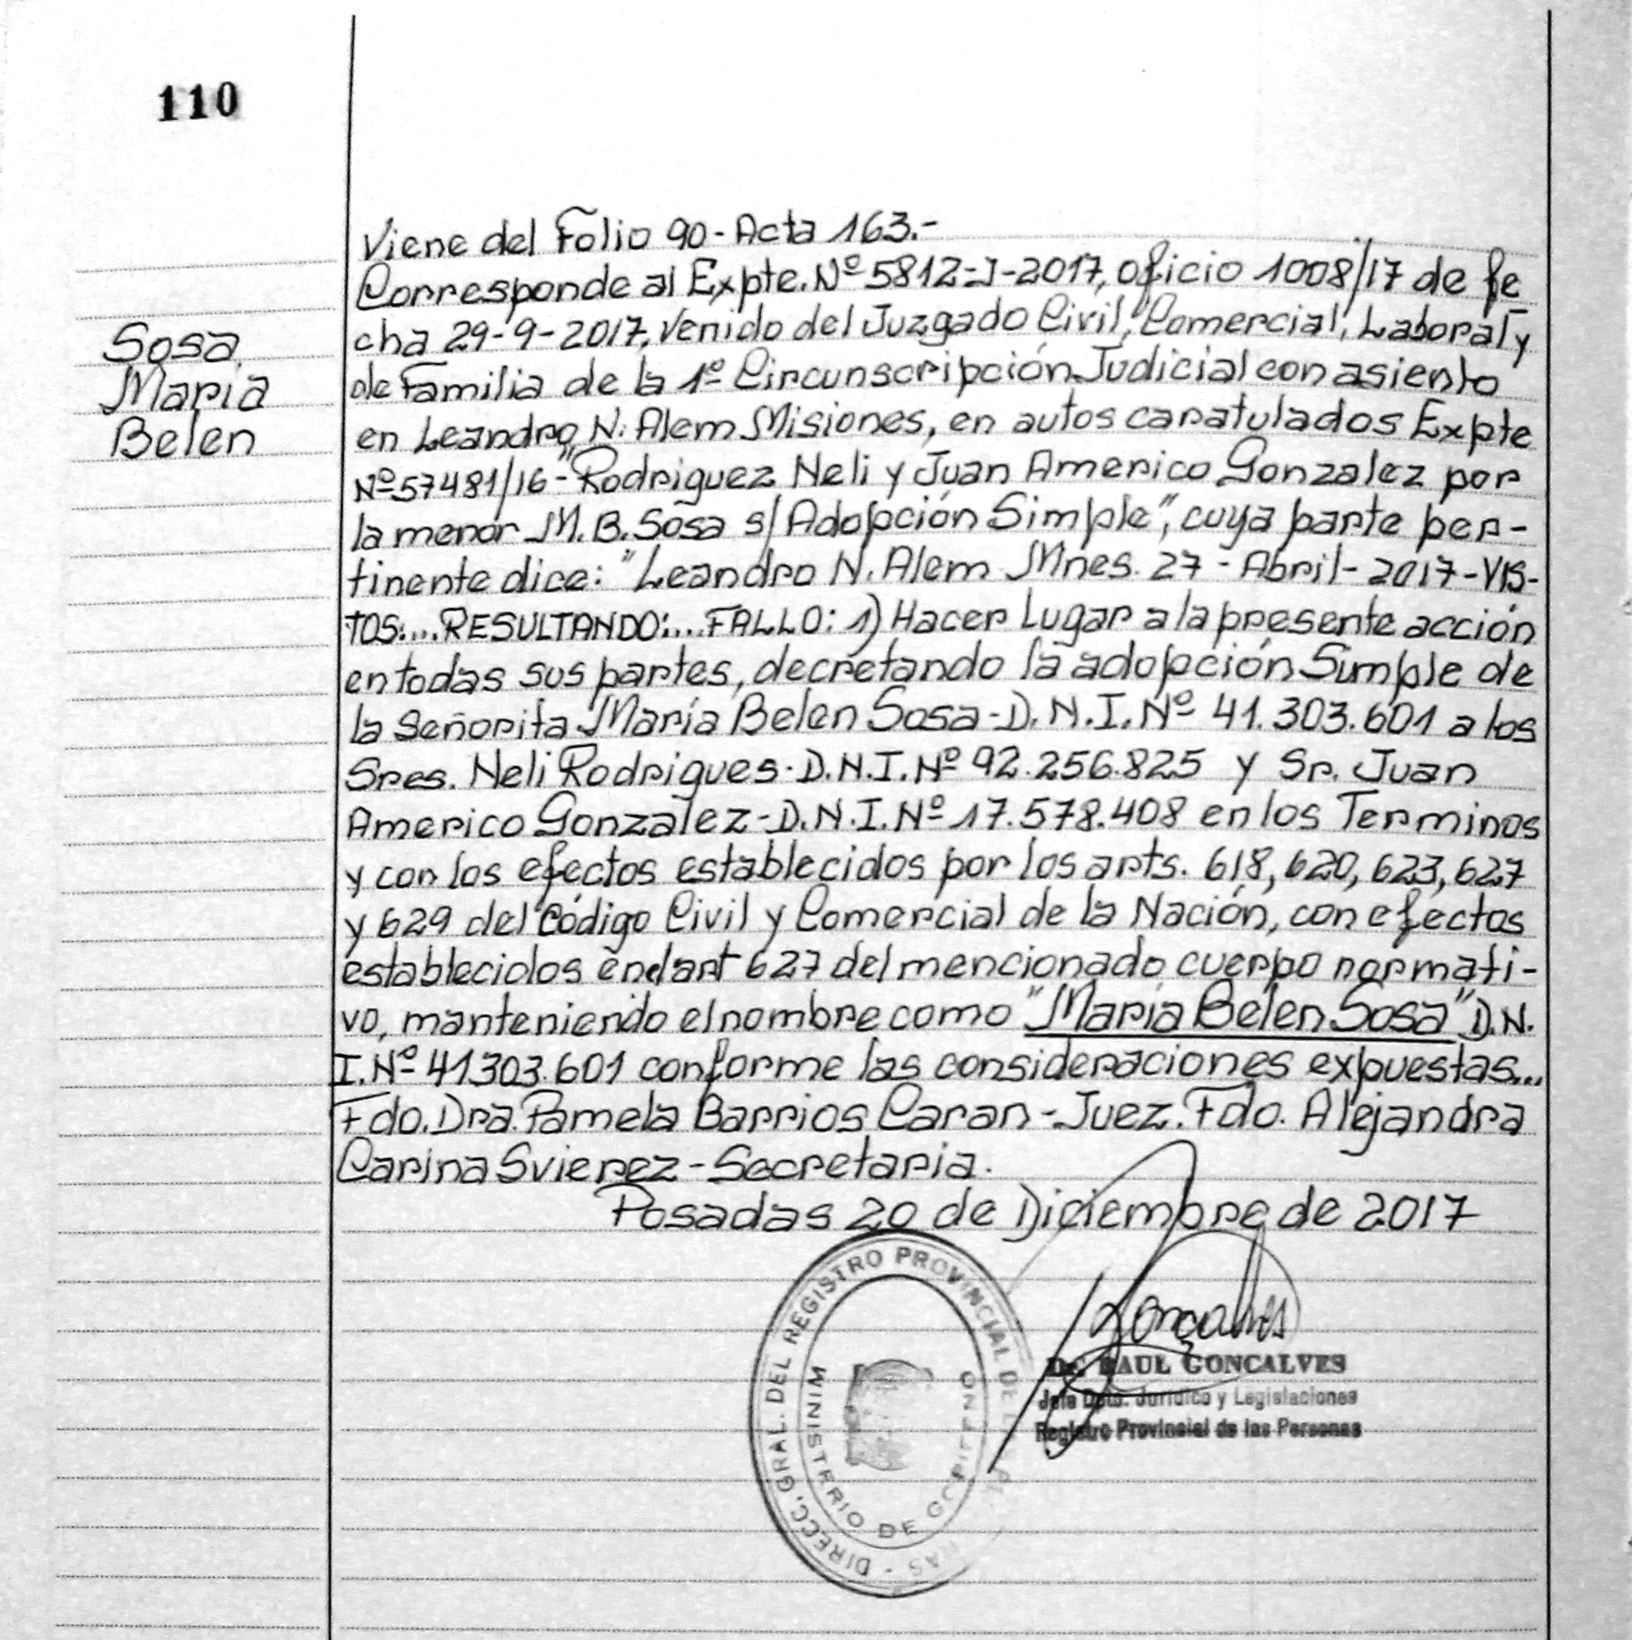 110
Sosa
María
Belen
Viene del Folio 90 - Acta 163.-
Corresponde al Expte. Nº 5812-J-2017, oficio 1008/17 de fe
cha 29-9-2017, venido del Juzgado Civil, Comercial, Laboral y
de Familia de la 1º Circunscripción Judicial con asiento
en Leandro N. Alem Misiones, en autos caratulados Expte
Nº 57481/16-"Rodriguez Neli y Juan Americo Gonzalez por
la menor M.B. Sosa s/ Adopción Simple", cuya parte per-
tinente dice: "Leandro N. Alem Mnes. 27 - Abril - 2017 - VIS-
TOS:... RESULTANDO:... FALLO: 1) Hacer Lugar a la presente acción
en todas sus partes, decretando la adopción Simple de
la Señorita María Belen Sosa - D.N.I. Nº 41.303.601 a los
Sres. Neli Rodrigues - D.N.I. Nº 92.256.825 y Sr. Juan
Americo Gonzalez - D.N.I. Nº 17.578.408 en los Terminos
y con los efectos establecidos por los arts. 618, 620, 623, 627
y 629 del Código Civil y Comercial de la Nación, con efectos
establecidos en el art 627 del mencionado cuerpo normati-
vo, manteniendo el nombre como "María Belen Sosa" D.N.
I. Nº 41303.601 conforme las consideraciones expuestas...
Fdo. Dra. Pamela Barrios Caran - Juez. Fdo. Alejandra
Carina Svierez - Secretaria.
Posadas 20 de Diciembre de 2017
DIRECC. GRAL. DEL REGISTRO PROVINCIAL DE
MINISTERIO DE GOBIERNO
Gonçalves
Dr. RAUL GONCALVES
Jefe Dpto. Jurídico y Legislaciones
Registro Provincial de las Personas